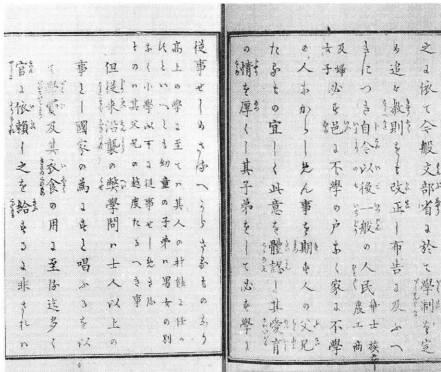 之に依て今般文部省に於て學制を定
め追々教則をも改正し布告に及ふへ
きにつき自今以後一般の人民華士族農工商
及婦女子必す邑に不學の戸なく家に不學
の人なからしめん事を期す人の父兄
たるもの宜しく此意を體認し其愛育
の情を厚くし其子弟をして必す學に
從事せしめさるへからさるものなり
高上の學に至ては其人の材能に任か
すといへとも幼童の子弟は男女の別
なく小學に從事せしめさる
ものは其父兄の越度たるへき事
但從來沿襲の弊學問は士人以上の
事とし國家の爲にすと唱ふるを以
て學費及其衣食の用に至る迄多く
官に依頼し之を給するに非されは